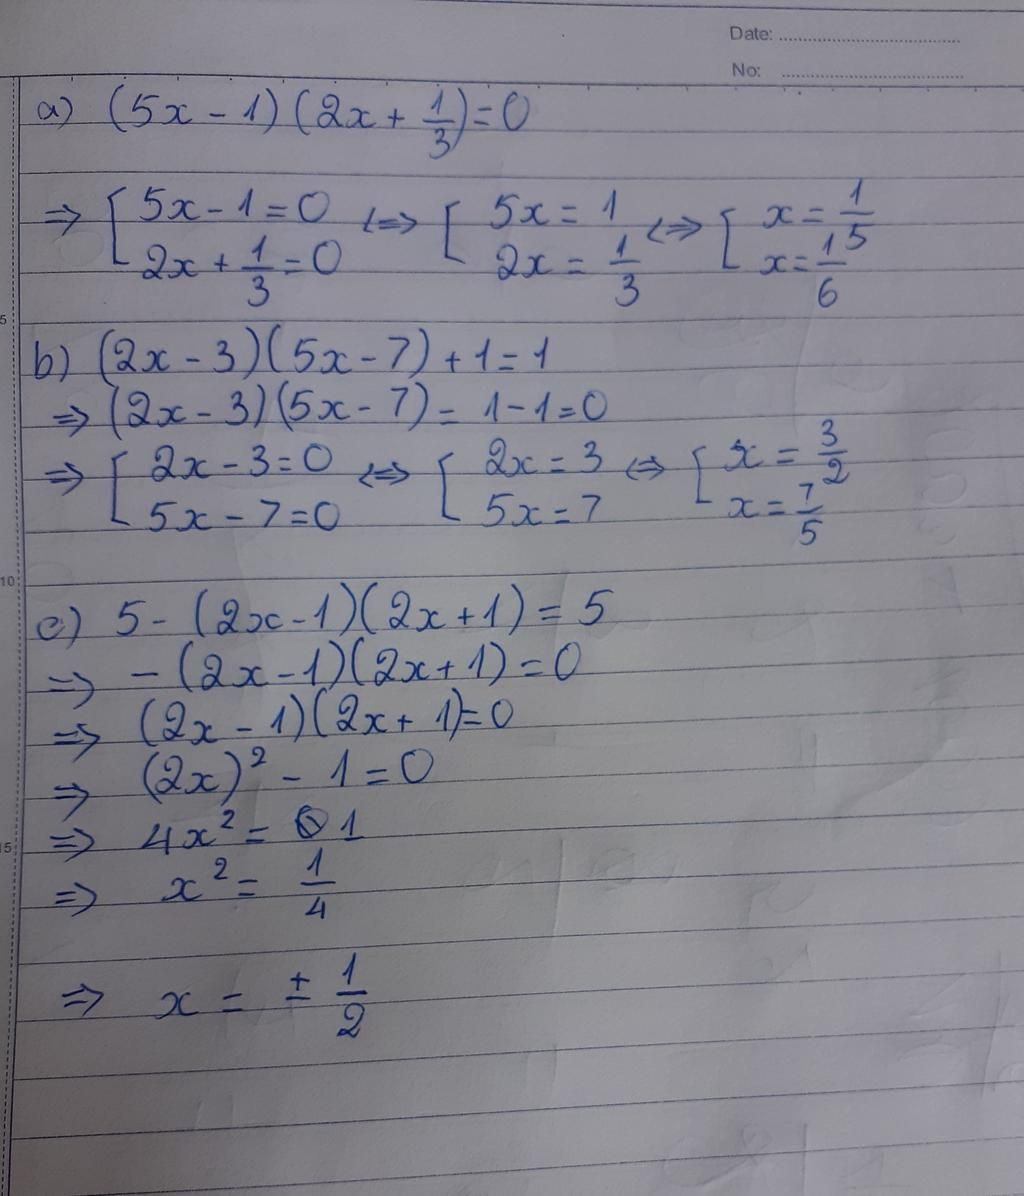 Date: ........................................
No: ........................................
a) (5x - 1)(2x + 1/3) = 0
⇒ [ 5x - 1 = 0 ⇔ [ 5x = 1 ⇔ [ x = 1/5
2x + 1/3 = 0 2x = 1/3 x = 1/6
5
b) (2x - 3)(5x - 7) + 1 = 1
⇒ (2x - 3)(5x - 7) = 1 - 1 = 0
⇒ [ 2x - 3 = 0 ⇔ [ 2x = 3 ⇔ [ x = 3/2
5x - 7 = 0 5x = 7 x = 7/5
10
c) 5 - (2x - 1)(2x + 1) = 5
⇒ - (2x - 1)(2x + 1) = 0
⇒ (2x - 1)(2x + 1) = 0
⇒ (2x)² - 1 = 0
⇒ 4x² = 1
15
⇒ x² = 1/4
⇒ x = ± 1/2